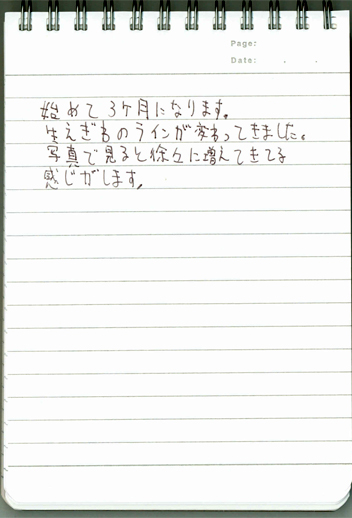 Page:
Date: . .
始めて3ヶ月になります。
生えぎわのラインが変わってきました。
写真で見ると徐々に増えてきてる
感じがします。